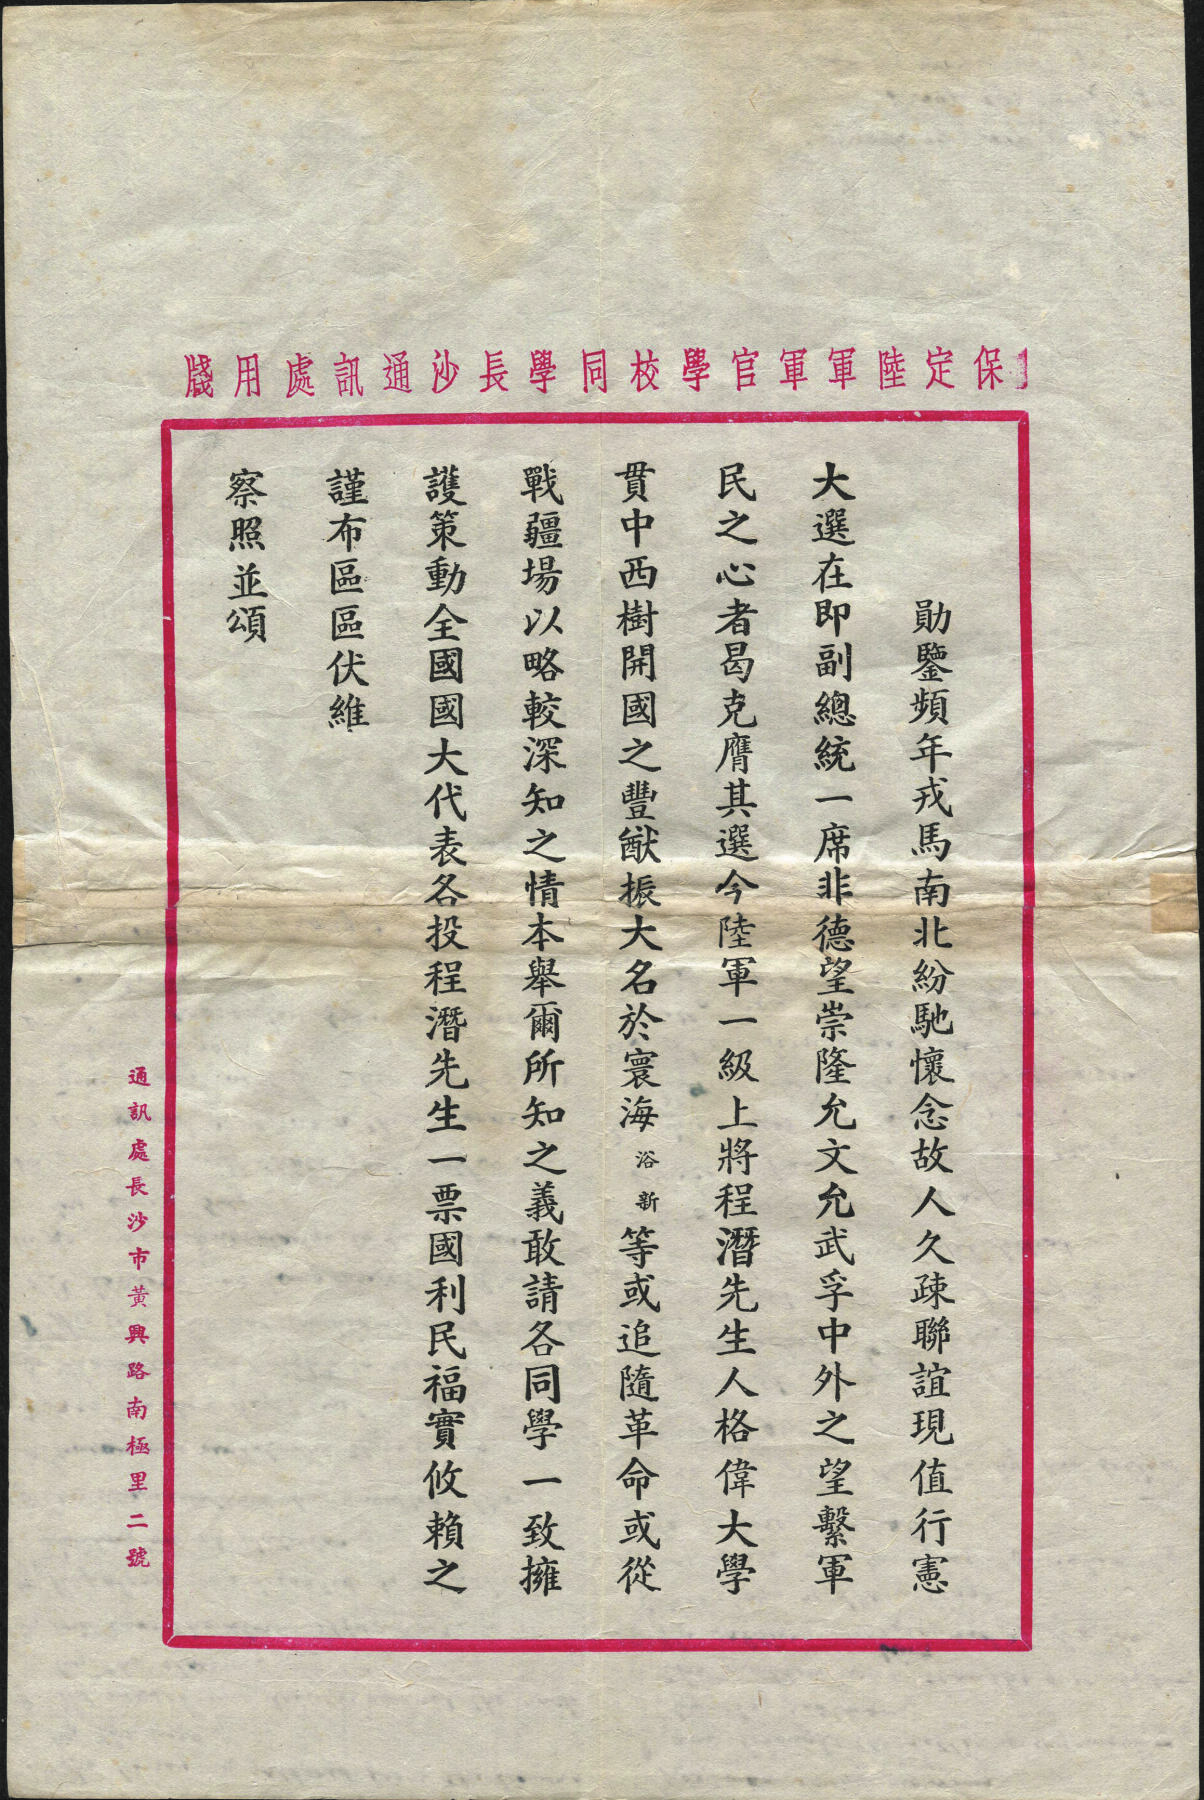 保定陸軍軍官學校同學長沙通訊處用牋
勛鑒頻年戎馬南北紛馳懷念故人久疎聯誼現值行憲
大選在即副總統一席非德望崇隆允文允武孚中外之望繫軍
民之心者曷克膺其選今陸軍一級上將程潛先生人格偉大學
貫中西樹開國之豐猷振大名於寰海浴新等或追隨革命或從
戰疆場以略較深知之情本舉爾所知之義敢請各同學一致擁
護策動全國國大代表各投程潛先生一票國利民福實攸賴之
謹布區區伏維
察照並頌
通訊處長沙市黃興路南極里二號